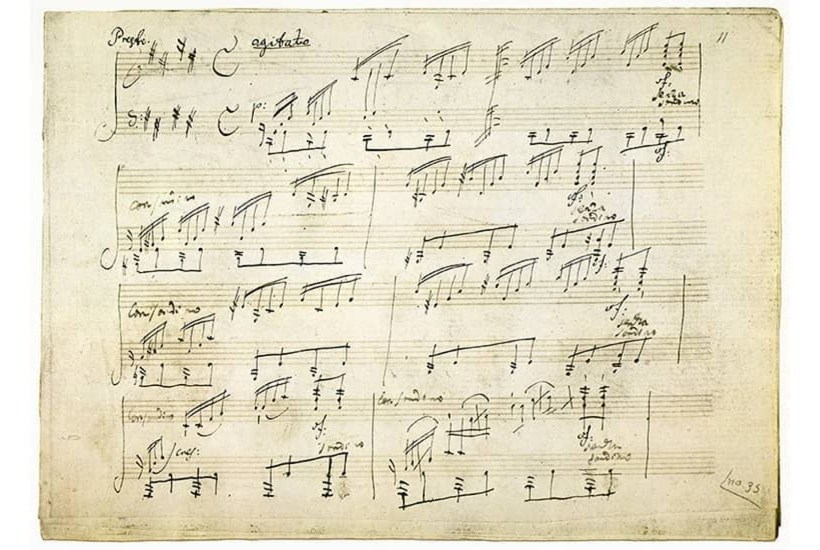 Presto. agitato 11
p:
sf. senza sordino
sf:
con sordino
sf: senza sordino
sf:
Con sordino
sf: senza sordino
con sordino
cres:
sf: sordino
con sordino
sf: senza sordino
no. 35